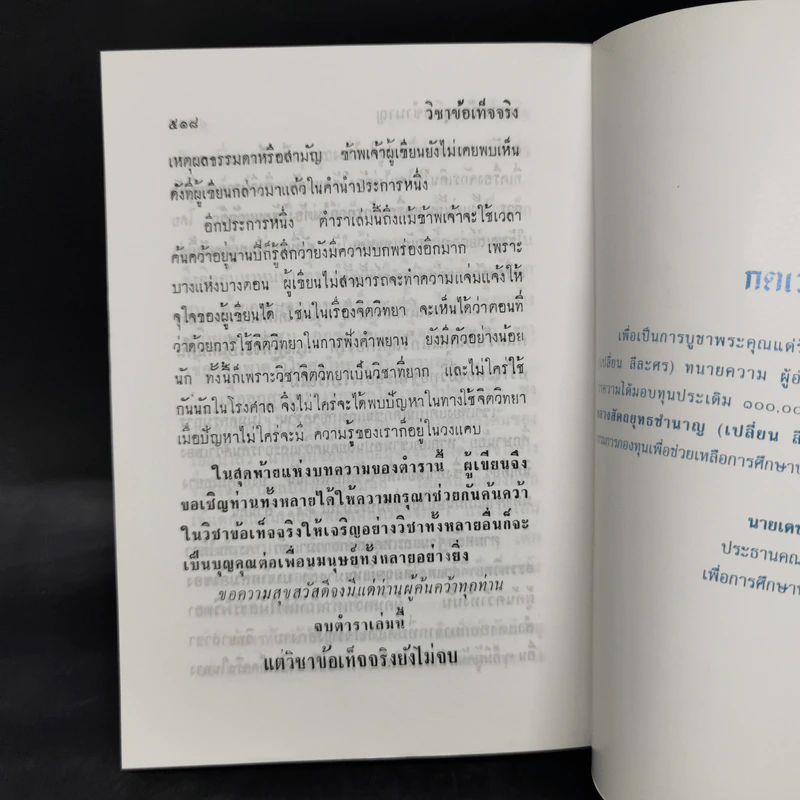 ๕๑๘ วิชาข้อเท็จจริง
เหตุผลธรรมดาหรือสามัญ ข้าพเจ้าผู้เขียนยังไม่เคยพบเห็น
ดังที่ผู้เขียนกล่าวมาแล้วในคำนำประการหนึ่ง
อีกประการหนึ่ง ตำราเล่มนี้ถึงแม้ข้าพเจ้าจะใช้เวลา
ค้นคว้าอยู่นานปีก็รู้สึกว่ายังมีความบกพร่องอีกมาก เพราะ
บางแห่งบางตอน ผู้เขียนไม่สามารถจะทำความแจ่มแจ้งให้
จุใจของผู้เขียนได้ เช่นในเรื่องจิตวิทยา จะเห็นได้ว่าตอนที่
ว่าด้วยการใช้จิตวิทยาในการฟังคำพยาน ยังมีตัวอย่างน้อย
นัก ทั้งนี้ก็เพราะวิชาจิตวิทยาเป็นวิชาที่ยาก และไม่ใคร่ใช้
กันนักในโรงศาล จึงไม่ใคร่จะได้พบปัญหาในทางใช้จิตวิทยา
เมื่อปัญหาไม่ใคร่จะมี ความรู้ของเราก็อยู่ในวงแคบ
ในสุดท้ายแห่งบทความของตำรานี้ ผู้เขียนจึง
ขอเชิญท่านทั้งหลายได้ให้ความกรุณาช่วยกันค้นคว้า
ในวิชาข้อเท็จจริงให้เจริญอย่างวิชาทั้งหลายอื่นก็จะ
เป็นบุญคุณต่อเพื่อนมนุษย์ทั้งหลายอย่างยิ่ง
ขอความสุขสวัสดีจงมีแด่ท่านผู้ค้นคว้าทุกท่าน
จบตำราเล่มนี้
แต่วิชาข้อเท็จจริงยังไม่จบ
เพื่อเป็นการบูชาพระคุณแด่
(เปลี่ยน ลีละศร) ทนายความ
ความได้มอบทุนประเดิม ๑๐๐,๐๐
หลวงสัตถยุทธชำนาญ (เปลี่ยน
กรรมการกองทุนเพื่อช่วยเหลือการศึกษา
นายเดช
ประธานคณ
เพื่อการศึกษา